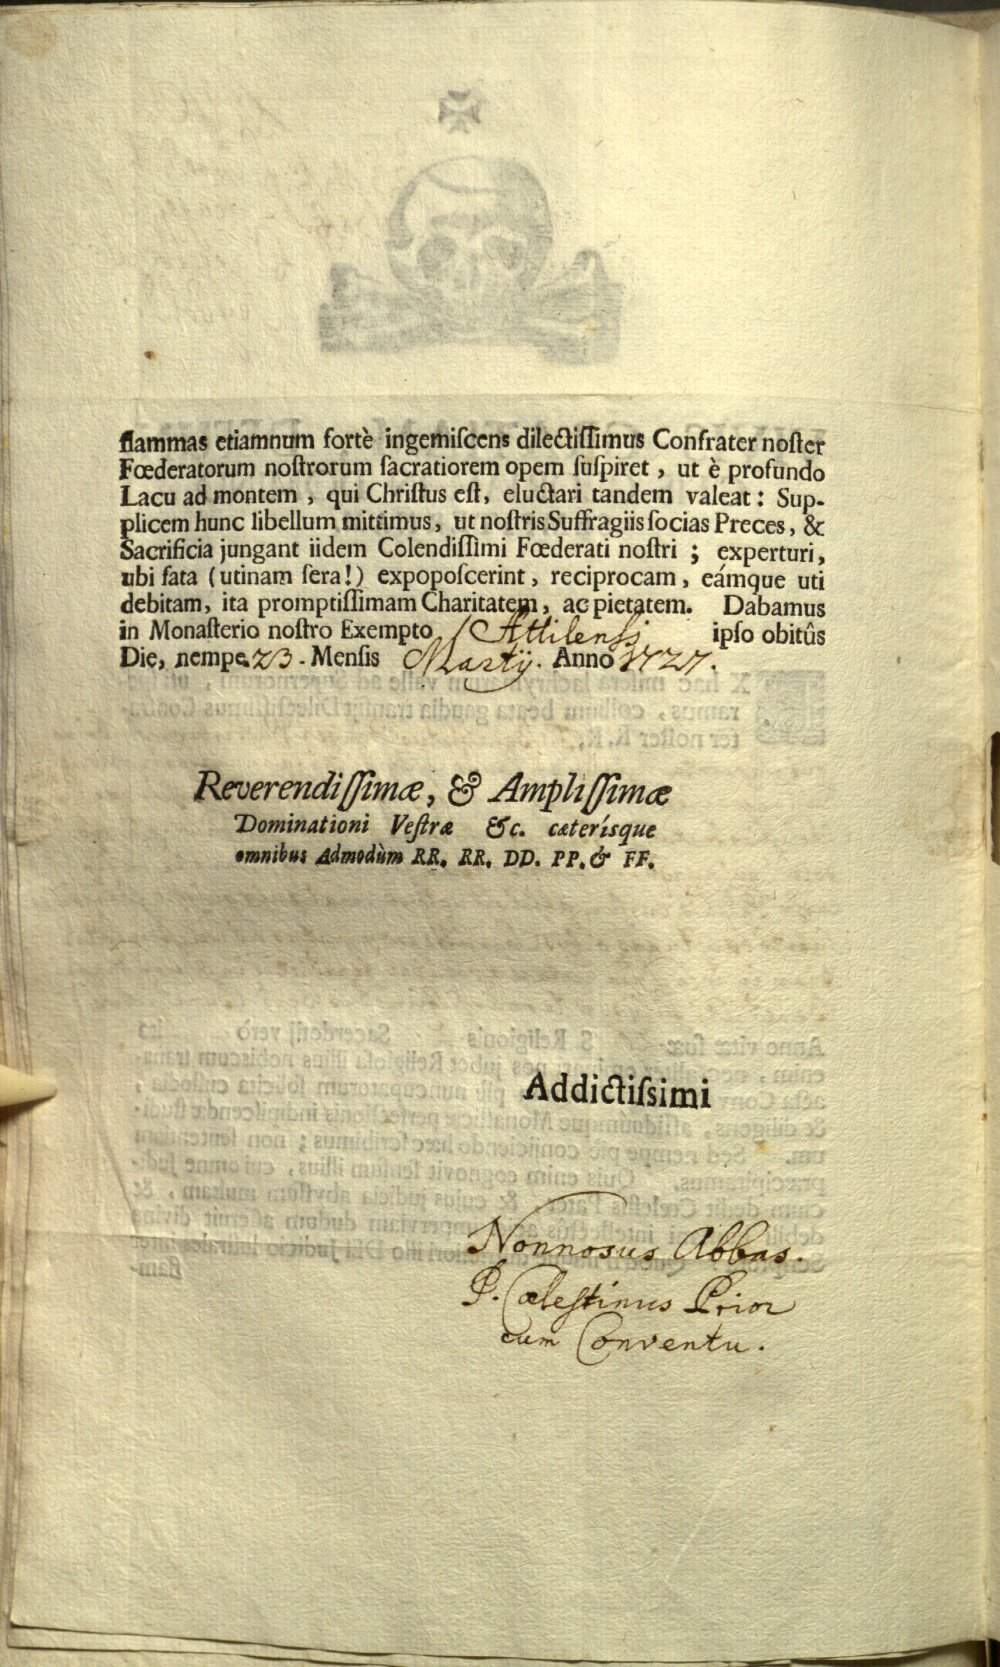 flammas etiamnum fortè ingemiſcens dilectiſſimus Confrater noſter
Fœderatorum noſtrorum ſacratiorem opem ſuſpiret, ut è profundo
Lacu ad montem, qui Chriſtus eſt, eluctari tandem valeat: Sup-
plicem hunc libellum mittimus, ut noſtris Suffragiis ſocias Preces, &
Sacrificia jungant iidem Colendiſſimi Fœderati noſtri; experturi,
ubi fata (utinam ſera!) expopoſcerint, reciprocam, eámque uti
debitam, ita promptiſſimam Charitatem, ac pietatem. Dabamus
in Monaſterio noſtro Exempto Attilenſi ipſo obitûs
Die, nempe 23. Menſis Martÿ. Anno 1727.
Reverendiſſimæ, & Ampliſſimæ
Dominationi Veſtræ &c. cæterísque
omnibus Admodùm RR. RR. DD. PP. & FF.
Addictiſsimi
Nonnosus Abbas.
P. Cœleſtinus Prior
cum Conventu.